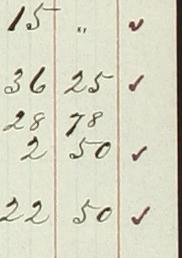 15 " ✓
36 25 ✓
28 78
2 50 ✓
22 50 ✓